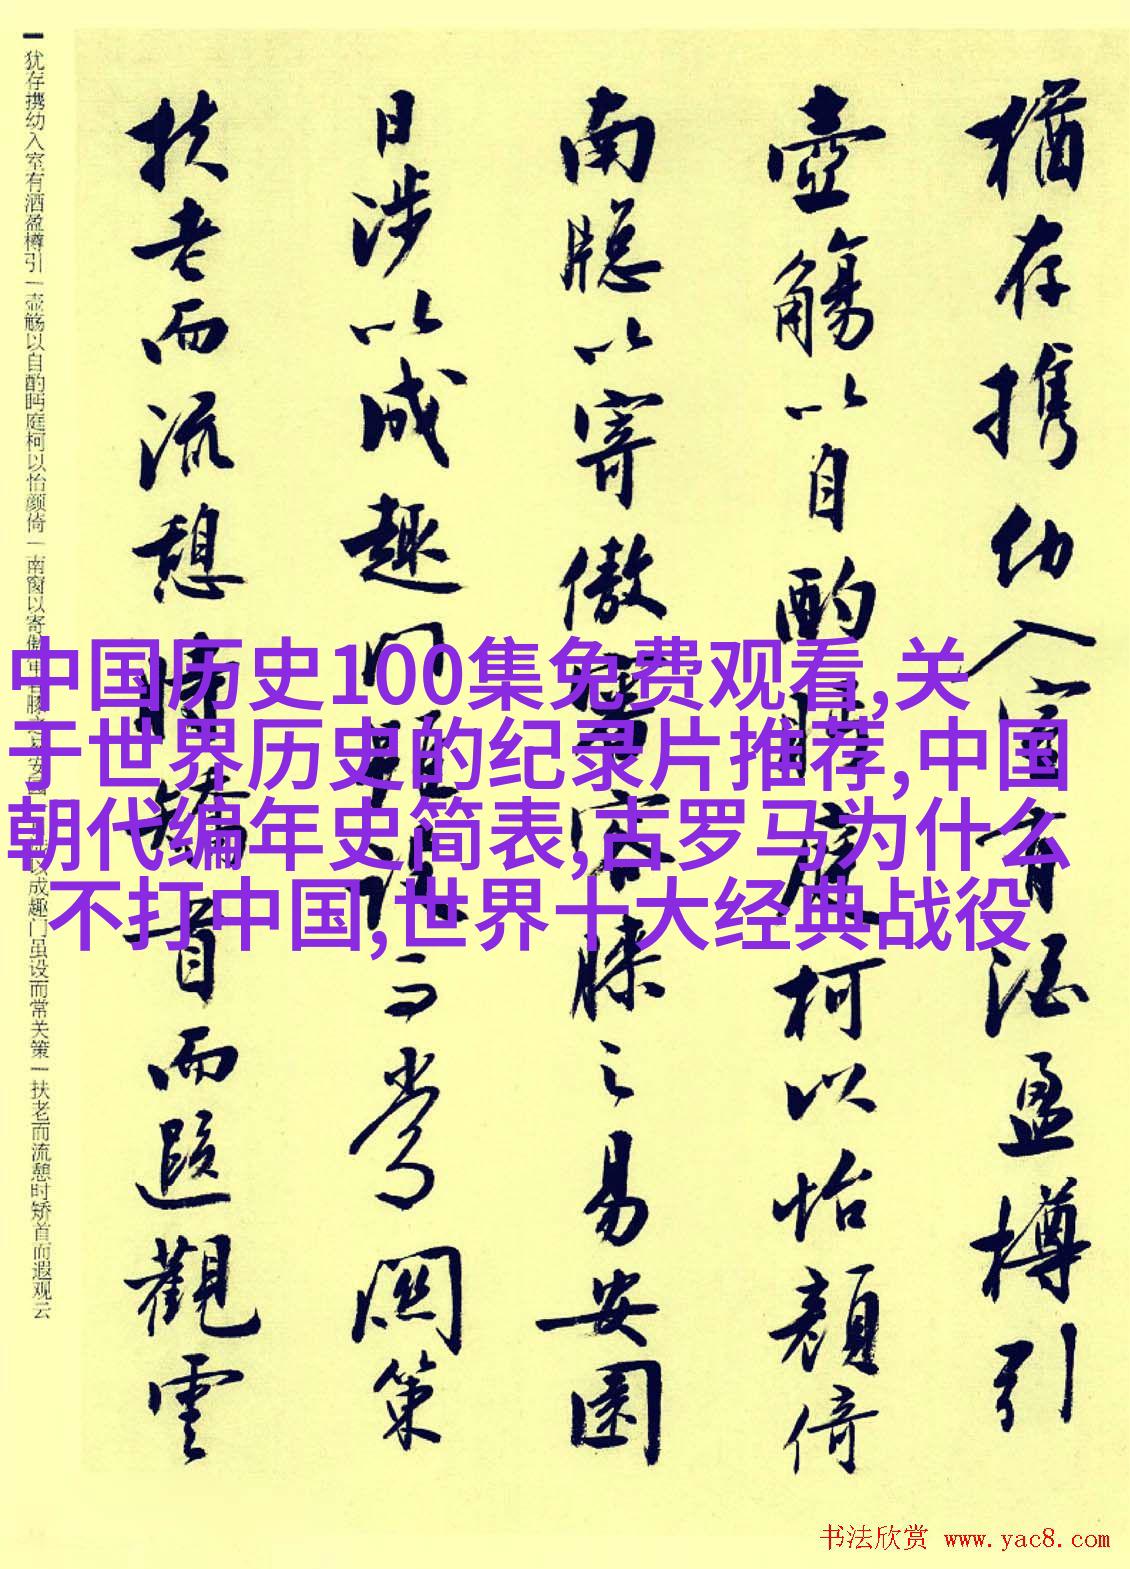 猶存携幼入室有酒盈樽引
壺觴以自酌眄庭柯以怡顔倚
南窓以寄傲審容膝之易安園
日涉以成趣門雖設而常関策
扶老而流憩時矯首而遐觀雲
中国历史100集免费观看,关
于世界历史的纪录片推荐,中国
朝代编年史简表,古罗马为什么
不打中国,世界十大经典战役
犹存携幼入室有酒盈樽引一壶觞以自酌眄庭柯以怡颜倚一南窗以寄傲审容膝之易安园一日涉以成趣门虽设而常关策一扶老而流憩时矫首而遐观云
书法欣赏 www.yac8.com